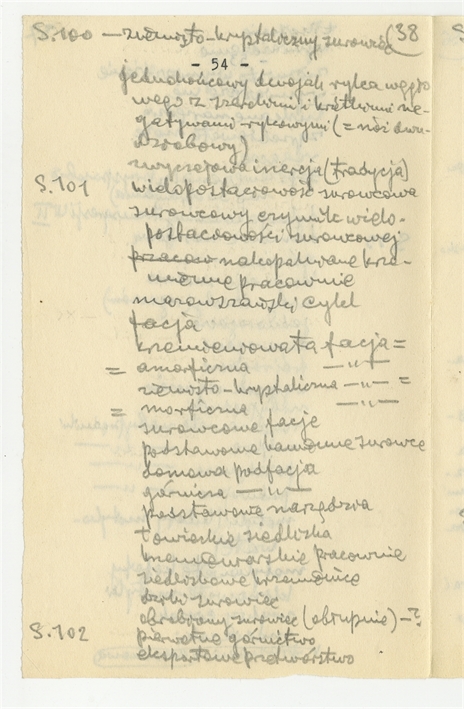 S.100 — ziemisto-krystaliczny surowiec (38
- 54 -
jednokońcowy dwojak rylca węgło
wego z szerokimi i krótkimi ne-
gatywami rylcowymi (= nóż dwu-
dzrobowy)
zwyczajowa inercja (tradycja)
S.101 wielopostaciowość surowcowa
surowcowy czynnik wielo-
postaciowości surowcowej
nakopalniane krze-
mienne pracownie
marowszański cykl
facja
krzemieniowata facja =
= amorficzna — „ —
ziemisto-krystaliczna — „ — =
= morficzna — „ —
surowcowe facje
podstawowe kamienne surowce
domowa podfacja
górnicza — „ —
podstawowe narzędzia
łowieckie siedliska
krzemieniarskie pracownie
siedliskowe krzemienice
surowiec
obrabiany surowiec (obłupnie) — ?
S.102 pierwotne górnictwo
eksportowe przetwórstwo